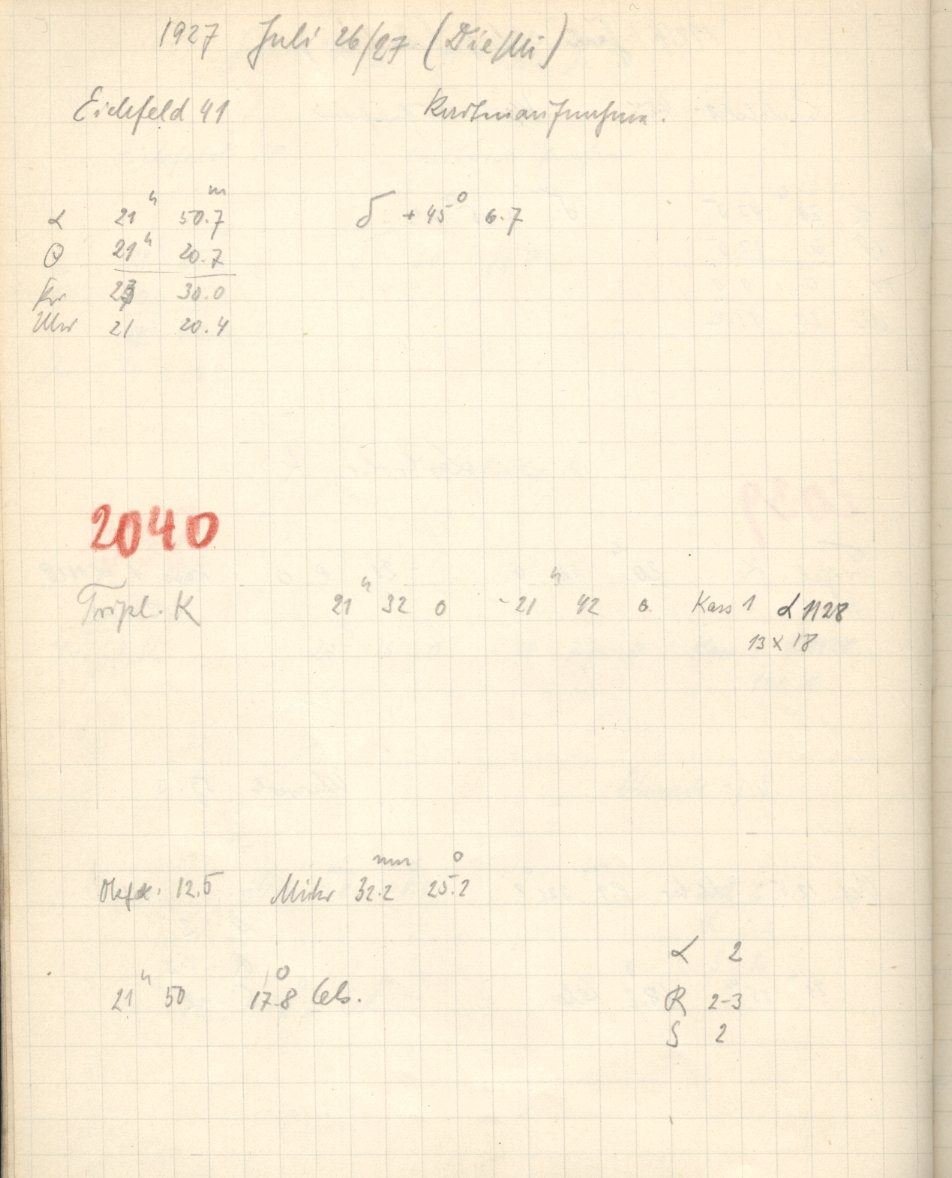 1927 Juli 26/27 (Die/Mi)
Eichfeld 41 Kartenaufnahme.
α 21h 50.7m δ +45° 6.7
Θ 21h 20.7
23 30.0
Uhr 21 20.4
2040
Tripl. K 21h 32 0 - 21h 42 0 Kass 1 L 1128
13 x 18
12,5 Mikr 32.2mm 25.2°
L 2
21h 50 17.8° Cels.
R 2-3
S 2